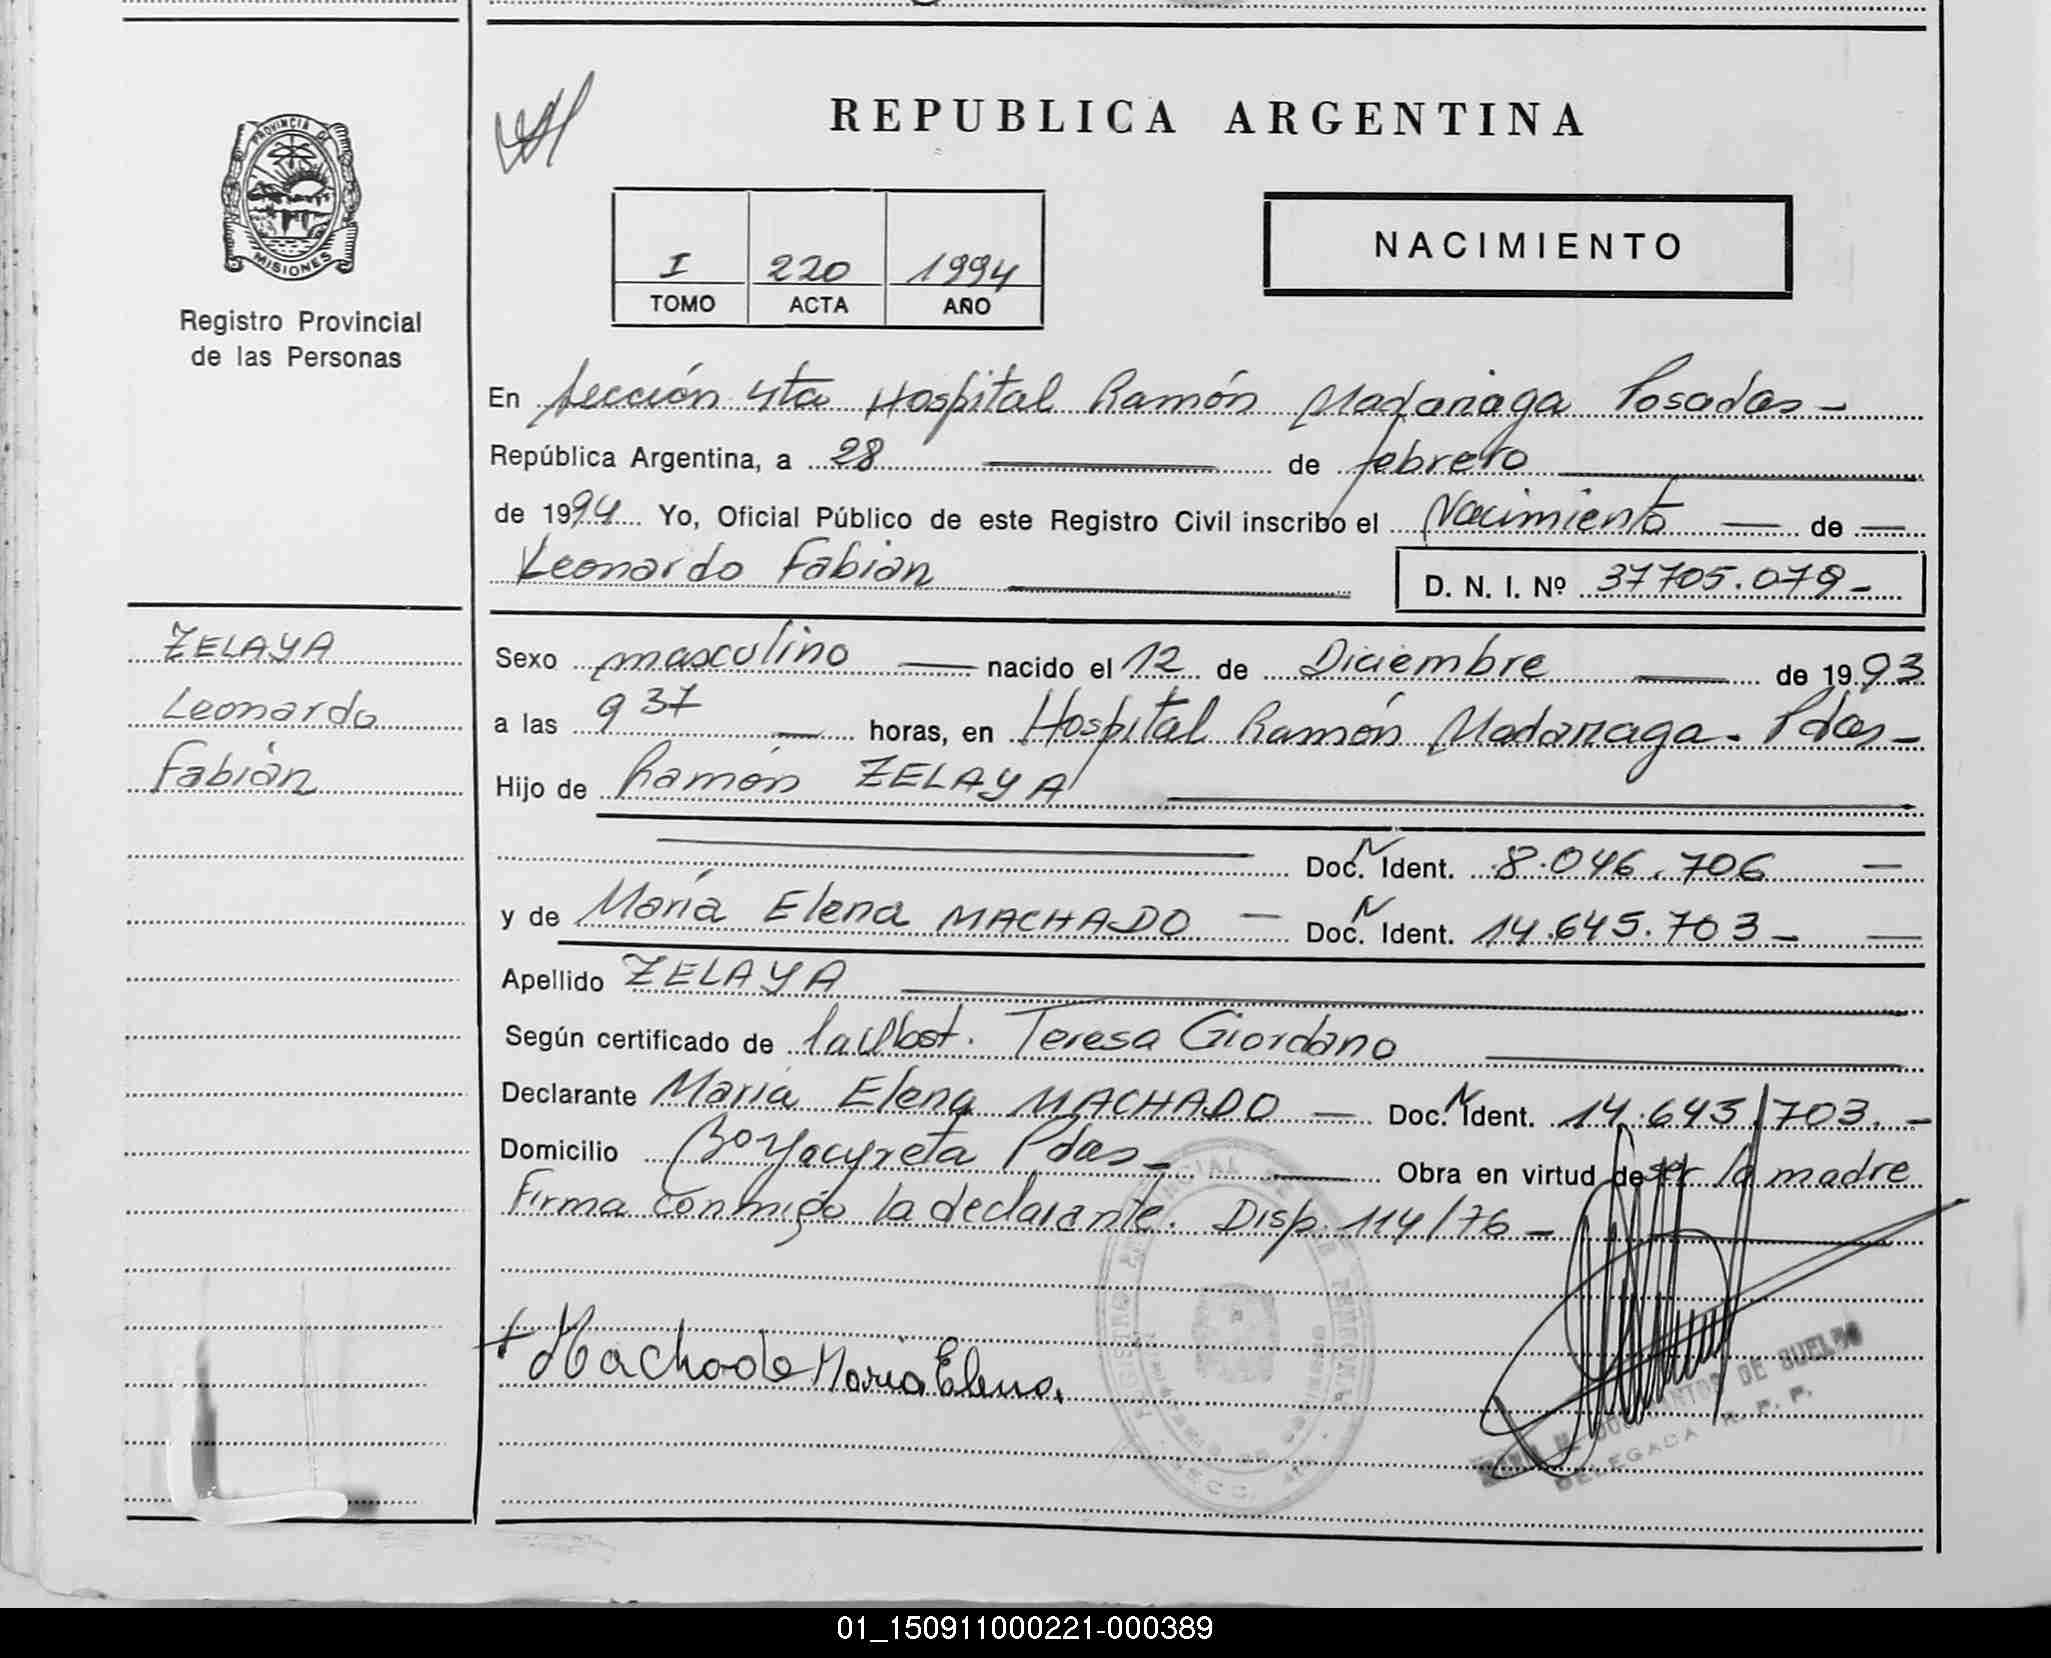 REPUBLICA ARGENTINA
PROVINCIA DE
MISIONES
Registro Provincial
de las Personas
I 220 1994
TOMO ACTA AÑO
NACIMIENTO
En Sección 4ta Hospital Ramón Madariaga Posadas -
República Argentina, a 28 de febrero
de 1994 Yo, Oficial Público de este Registro Civil inscribo el Nacimiento de
Leonardo Fabián D. N. I. Nº 37705.079-
ZELAYA
Leonardo
Fabián
Sexo masculino nacido el 12 de Diciembre de 1993
a las 9 37 horas, en Hospital Ramón Madariaga - Pdas -
Hijo de Ramón ZELAYA
Doc. N Ident. 8.046.706
y de María Elena MACHADO - Doc. N Ident. 14.645.703 -
Apellido ZELAYA
Según certificado de la Obst. Teresa Giordano
Declarante María Elena MACHADO - Doc. N Ident. 14.643.703. -
Domicilio Bo Yacyreta Pdas - Obra en virtud de ser la madre
Firma conmigo la declarante. Disp. 114/76 -
+ Machado Maria Elena.
DE SUELDO
DELEGADA R. P. P.
01_150911000221-000389